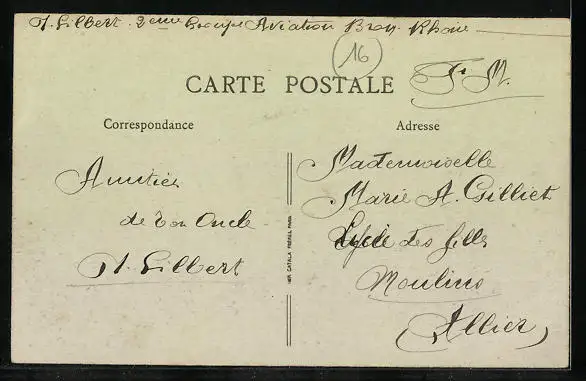 H. Gilbert. 2eme Groupe Aviation Bron. Rhône
16
CARTE POSTALE
F. M.
Correspondance
Adresse
Amitiés
de ton Oncle
H. Gilbert
IMP. CATALA FRÈRES, PARIS
Mademoiselle
Marie A. Gilliet
Lycée des filles
Moulins
(Allier)